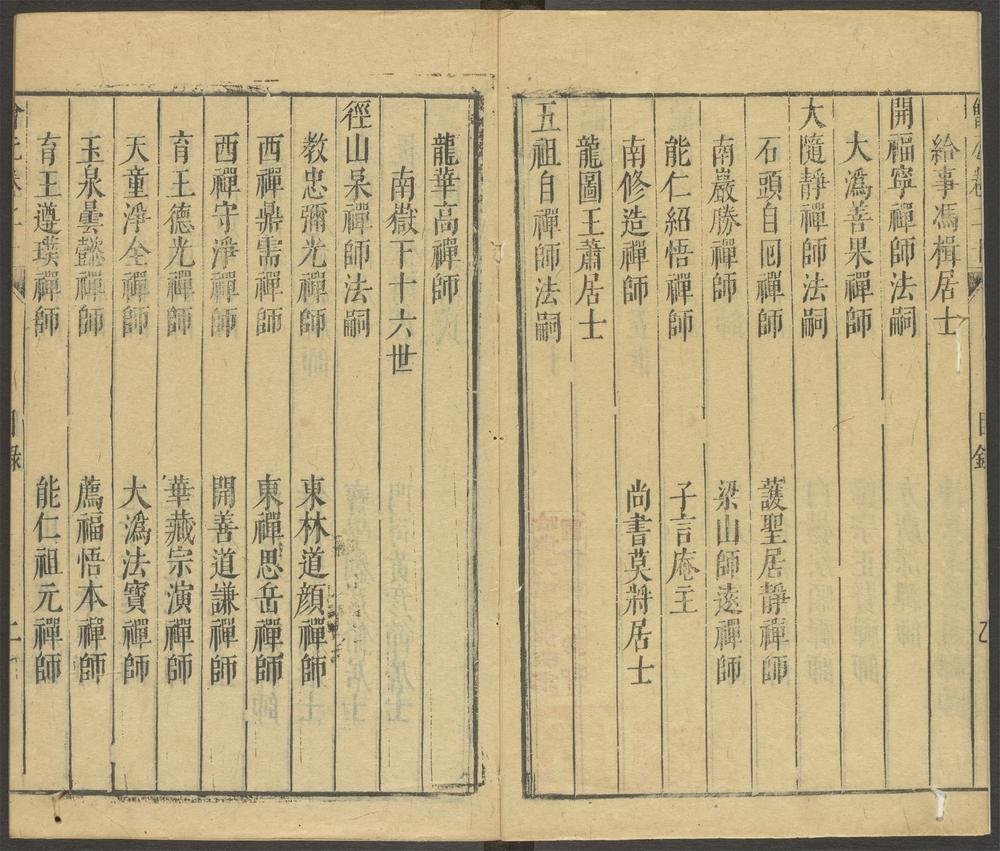 給事馮楫居士
開福寧禪師法嗣
大溈善果禪師
大隨靜禪師法嗣
石頭自回禪師　護聖居靜禪師
南巖勝禪師　梁山師遠禪師
能仁紹悟禪師　子言庵主
南修造禪師　尚書莫將居士
龍圖王蕭居士
五祖自禪師法嗣
龍華高禪師
南嶽下十六世
徑山杲禪師法嗣
教忠彌光禪師　東林道顏禪師
西禪鼎需禪師　東禪思岳禪師
西禪守淨禪師　開善道謙禪師
育王德光禪師　華藏宗演禪師
天童淨全禪師　大溈法寶禪師
玉泉曇懿禪師　薦福悟本禪師
育王遵璞禪師　能仁祖元禪師